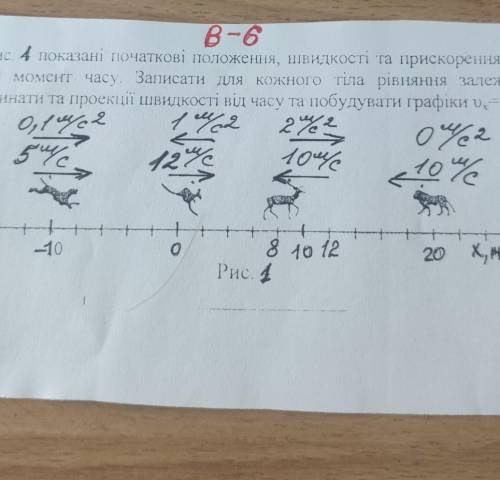 В-6
1 показані початкові положення, швидкості та прискорення
момент часу. Записати для кожного тіла рівняння
та проекції швидкості від часу та побудувати графіки υₓ=
0,1 м/с² 1 м/с² 2 м/с² 0 м/с²
5 м/с 12 м/с 10 м/с 10 м/с
-10 0 8 10 12 20 X, м
Рис. 1